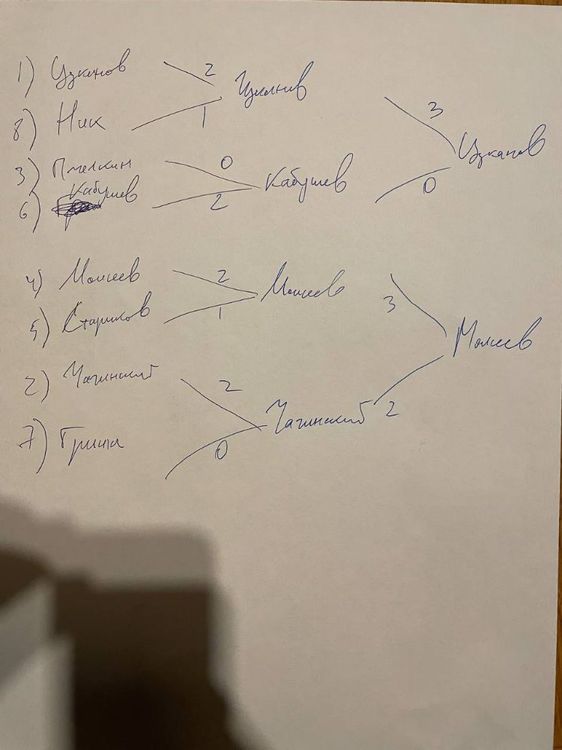 1) Цуканов 2
8) Ник 1
Цуканов 3
3) Пчелкин 0
6) Кабушев 2
Кабушев 0
Цуканов
4) Моисеев 2
5) Стариков 1
Моисеев 3
2) Чагинский 2
7) Гриша 0
Чагинский 2
Моисеев